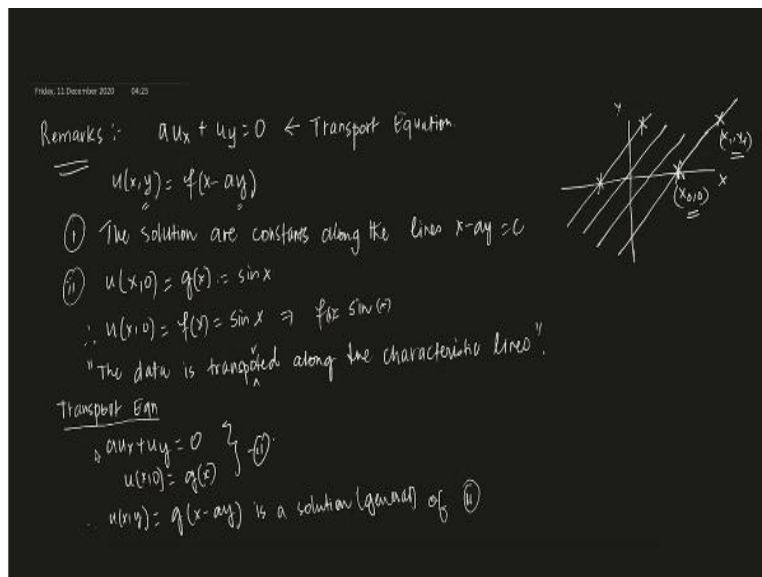 Friday, 11 December 2020 04:25
Remarks :- aux + uy = 0 ← Transport Equation
u(x,y) = f(x-ay)
(i) The solution are constants along the lines x-ay = c
(ii) u(x,0) = g(x) = sinx
∴ u(x,0) = f(x) = sinx ⇒ f(x) = sin(x)
"The data is transpoted along the characteristic lines".
Transport Eqn
aux+uy = 0
u(x,0) = g(x) } -(ii)
∴ u(x,y) = g(x-ay) is a solution (general) of (ii)
Y
X
(x1,y1)
(x0,0)